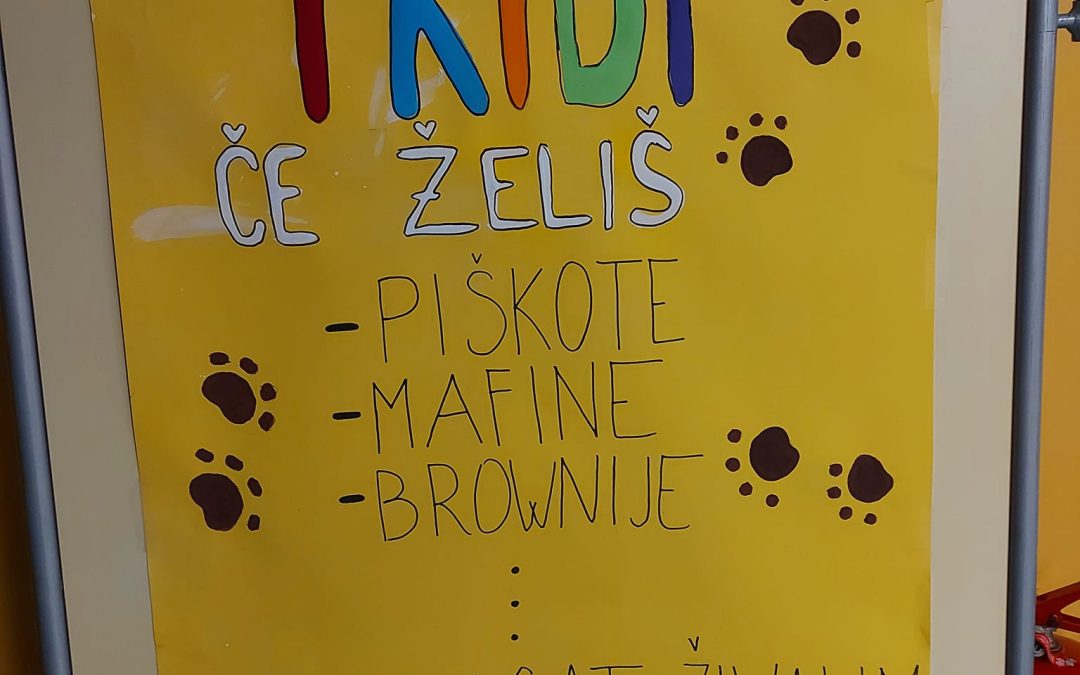 PRIDI
ČE ŽELIŠ
- PIŠKOTE
- MAFINE
- BROWNIJE